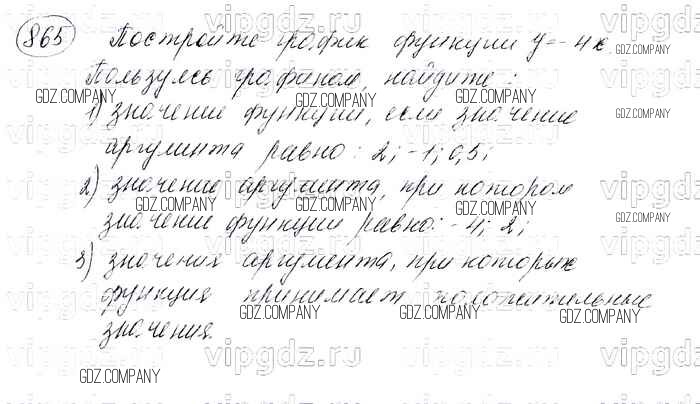 865 Постройте график функции y = -4x.
Пользуясь графиком, найдите:
1) значение функции, если значение
аргумента равно: 2; -1; 0,5;
2) значение аргумента, при котором
значение функции равно: -4; 2;
3) значения аргумента, при которых
функция принимает положительные
значения.